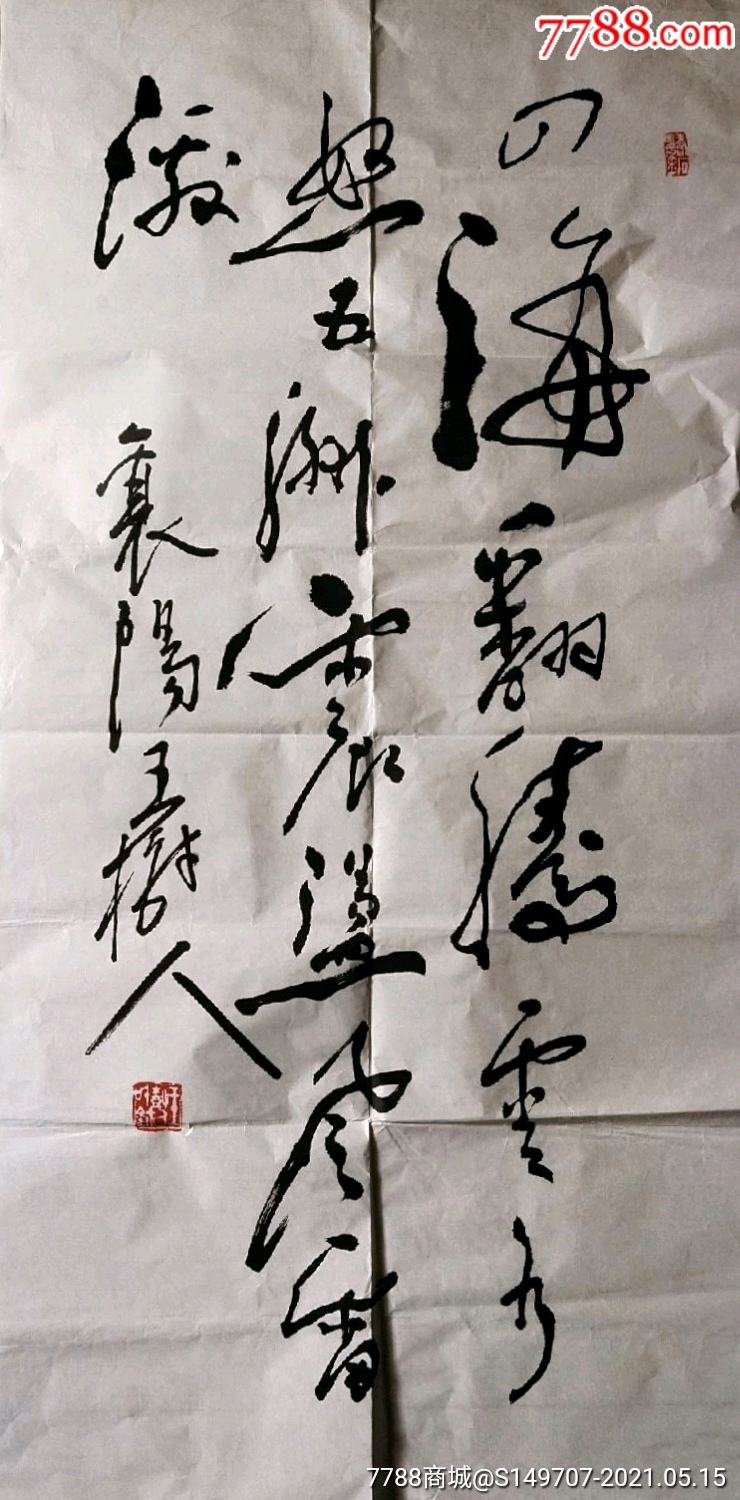 7788.com
四海翻騰雲水
怒五洲震盪風雷
激
襄陽王樹人
7788商城@S149707-2021.05.15